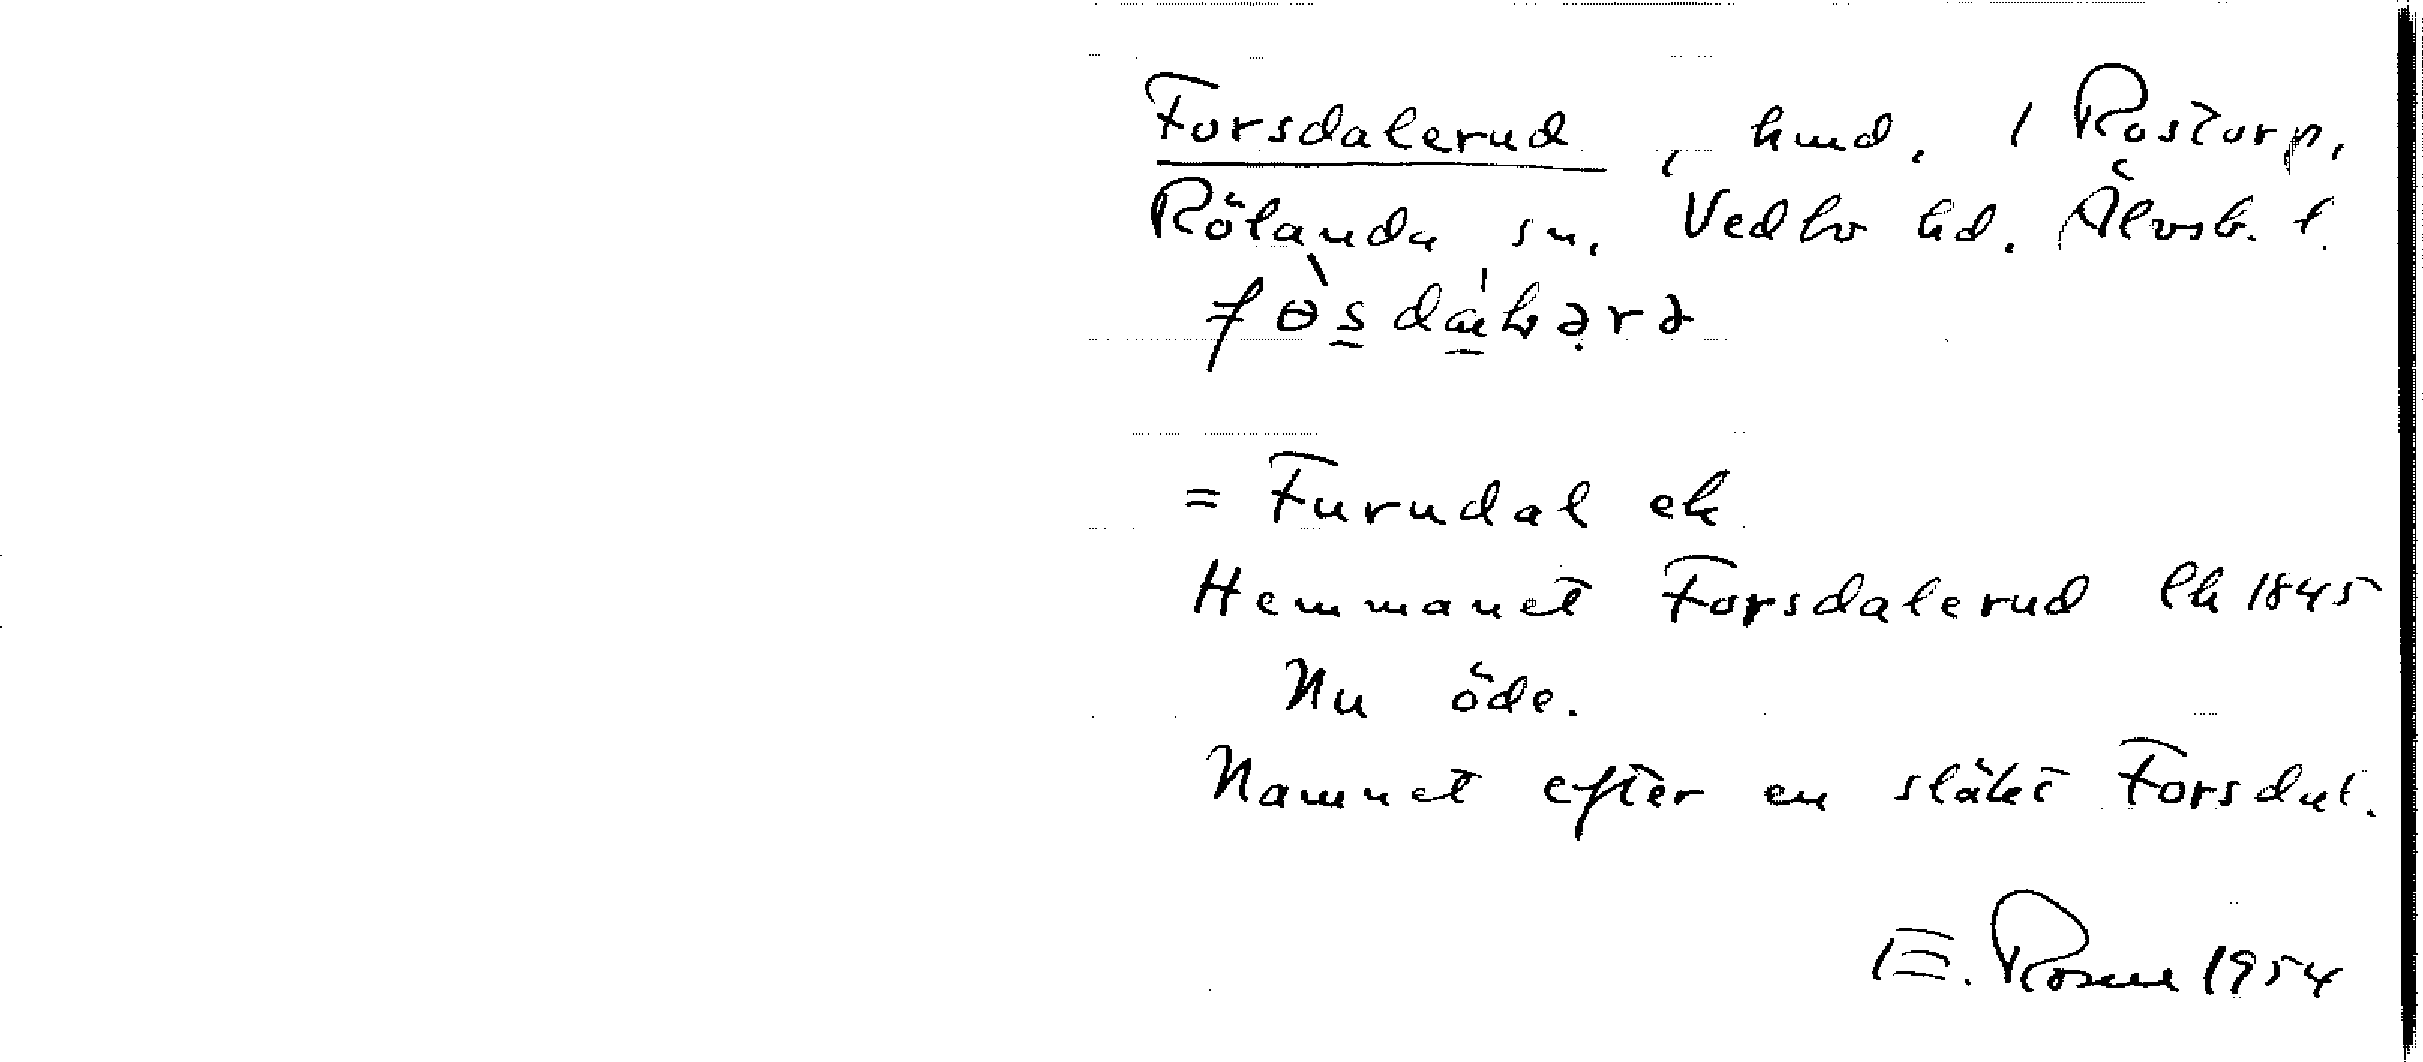 Forsdalerud, hmd. 1 Rostorp,
Rölanda sn. Vedbo hd. Älvsb. l.
= Furudal ek
Hemmanet Forsdalerud lh 1845
Nu öde.
Namnet efter en släkt Forsdal.
E. Rosell 1954